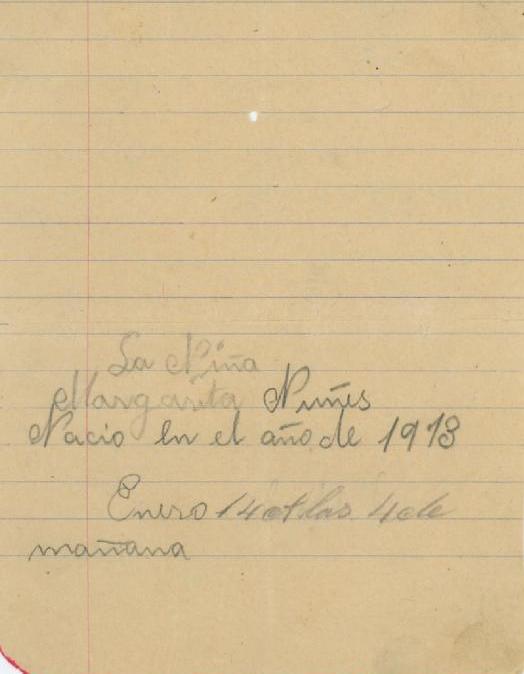 La Niña
Margarita Nuñes
Nacio en el año de 1913
Enero 14 a las 4 de
mañana